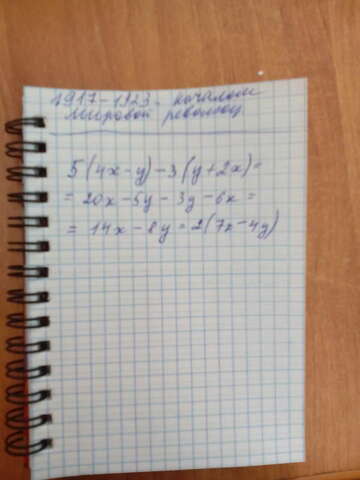 1917-1923. началом
мировой револю
5(4x-y)-3(y+2x)=
= 20x-5y-3y-6x=
= 14x-8y=2(7x-4y)